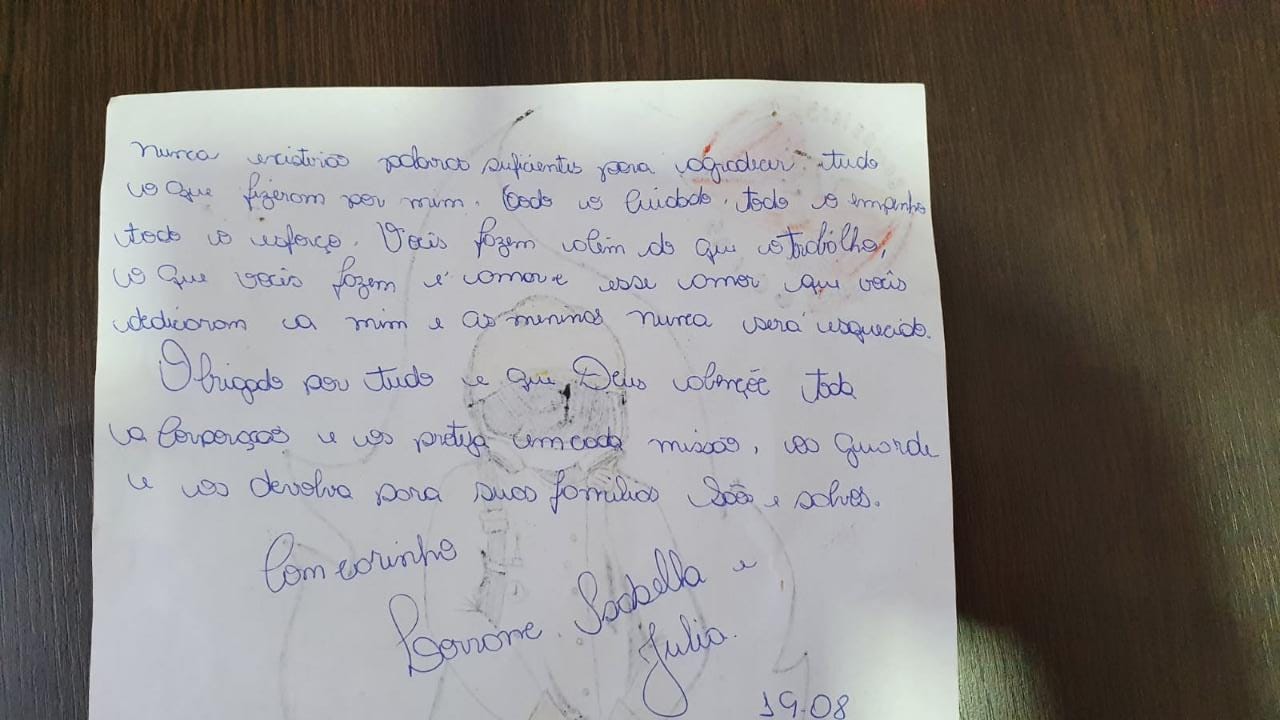 Nunca existirão palavras suficientes para agradecer tudo
o que fizeram por mim. Todo o cuidado, todo o empenho
todo o esforço. Vocês fazem além do que o trabalho,
o que vocês fazem é amor e esse amor que vocês
dedicaram a mim e as meninas nunca será esquecido.
Obrigado por tudo e que Deus abençõe toda
a Corporação e os proteja em cada missão, os guarde
e os devolva para suas famílias sãos e salvos.
Com carinho
Isabella e
Julia.
19.08